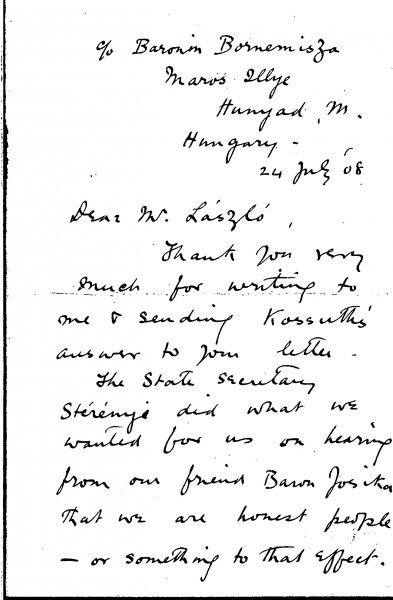 c/o Baronin Bornemisza
Maros Illye
Hunyad M.
Hungary -
24 July '08
Dear Mr. László,
Thank you very
much for writing to
me & sending Kossuth's
answer to your letter -
The State secretary
Stérényi did what we
wanted for us on hearing
from our friend Baron Josika
that we are honest people
- or something to that effect.